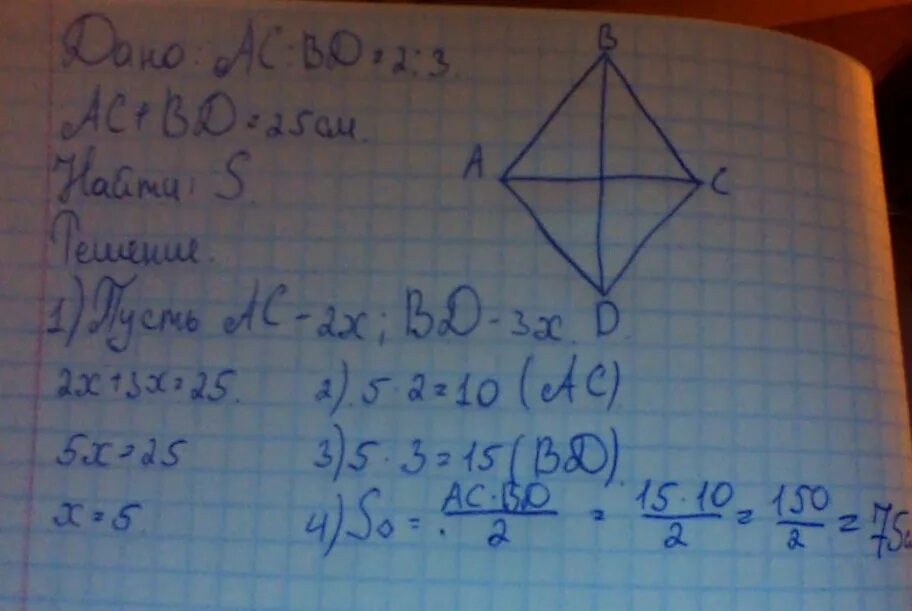 Дано: AC:BD=2:3.
AC+BD=25см.
Найти: S.
Решение.
1) Пусть AC-2x; BD-3x.
2x+3x=25.
5x=25
x=5.
2) 5·2=10 (AC)
3) 5·3=15 (BD).
4) S◊ = AC·BD/2 = 15·10/2 = 150/2 = 75
B
A
C
D